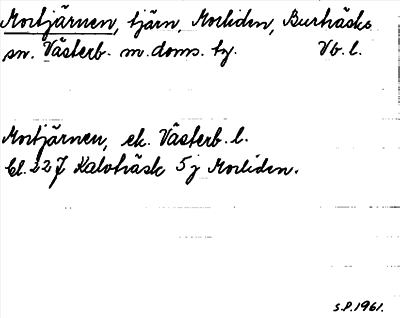 Mortjärnen, tjärn, Morliden, Burträsks
sn. Västerb. m. doms. hg. Vb. l.
Mortjärnen, ek. Västerb. l.
bl. 227 Kalvträsk 5j Morliden.
S.P. 1961.